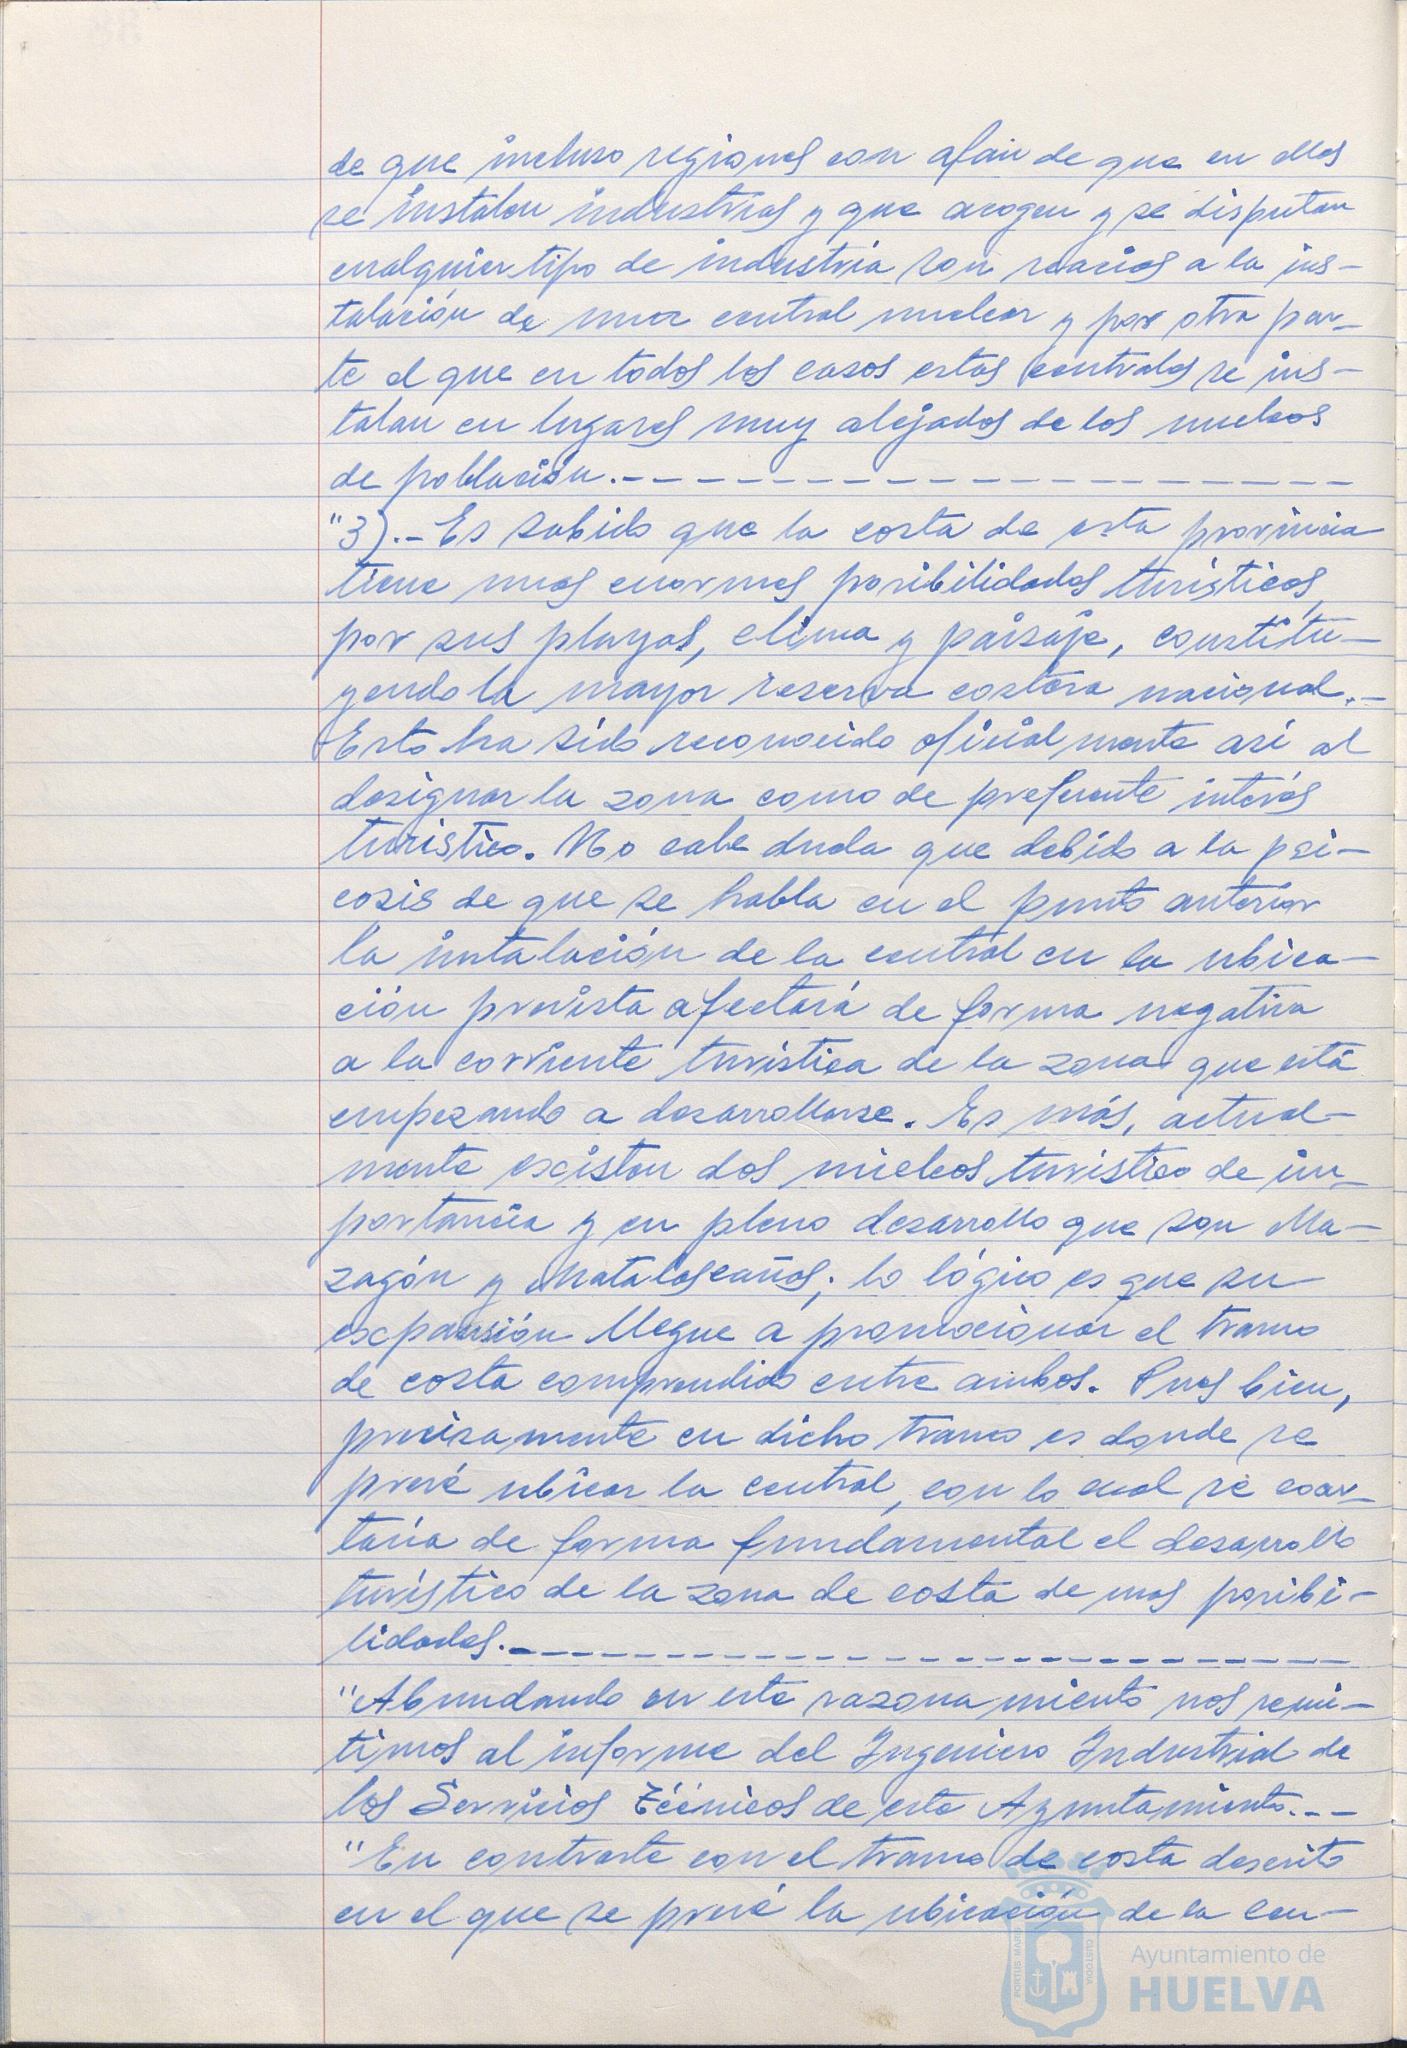 de que incluso regiones con afán de que en ellas
se instalen industrias y que acogen y se disputan
cualquier tipo de industria son reacios a la ins-
talación de una central nuclear y por otra par-
te el que en todos los casos estas centrales se ins-
talan en lugares muy alejados de los nucleos
de población.-
"3).- Es sabido que la costa de esta provincia
tiene unas enormes posibilidades turisticas
por sus playas, clima y paisaje, constitu-
yendo la mayor reserva costera nacional.-
Esto ha sido reconocido oficialmente asi al
designar la zona como de preferente interés
turistico. No cabe duda que debido a la psi-
cosis de que se habla en el punto anterior
la instalación de la central en la ubica-
ción prevista afectará de forma negativa
a la corriente turistica de la zona que está
empezando a desarrollarse. Es más, actual-
mente existen dos nucleos turistico de im-
portancia y en pleno desarrollo que son Ma-
zagón y Matalascañas; lo lógico es que su
expansión llegue a promocionar el tramo
de costa comprendido entre ambos. Pues bien,
precisamente en dicho tramo es donde se
prevé ubicar la central, con lo cual se coar-
taria de forma fundamental el desarrollo
turistico de la zona de costa de mas posibi-
lidades.-
"Abundando en este razonamiento nos remi-
timos al informe del Ingeniero Industrial de
los Servicios Técnicos de este Ayuntamiento.--
"En contraste con el tramo de costa descrito
en el que se prevé la ubicación de la cen-
PORTUS MARIS CUSTODIA
Ayuntamiento de
HUELVA